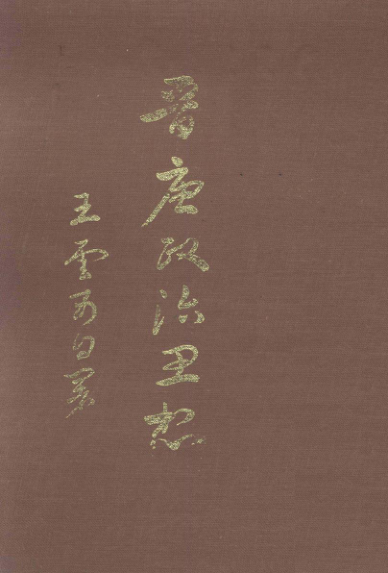 晋唐政治思想
王雲五自署